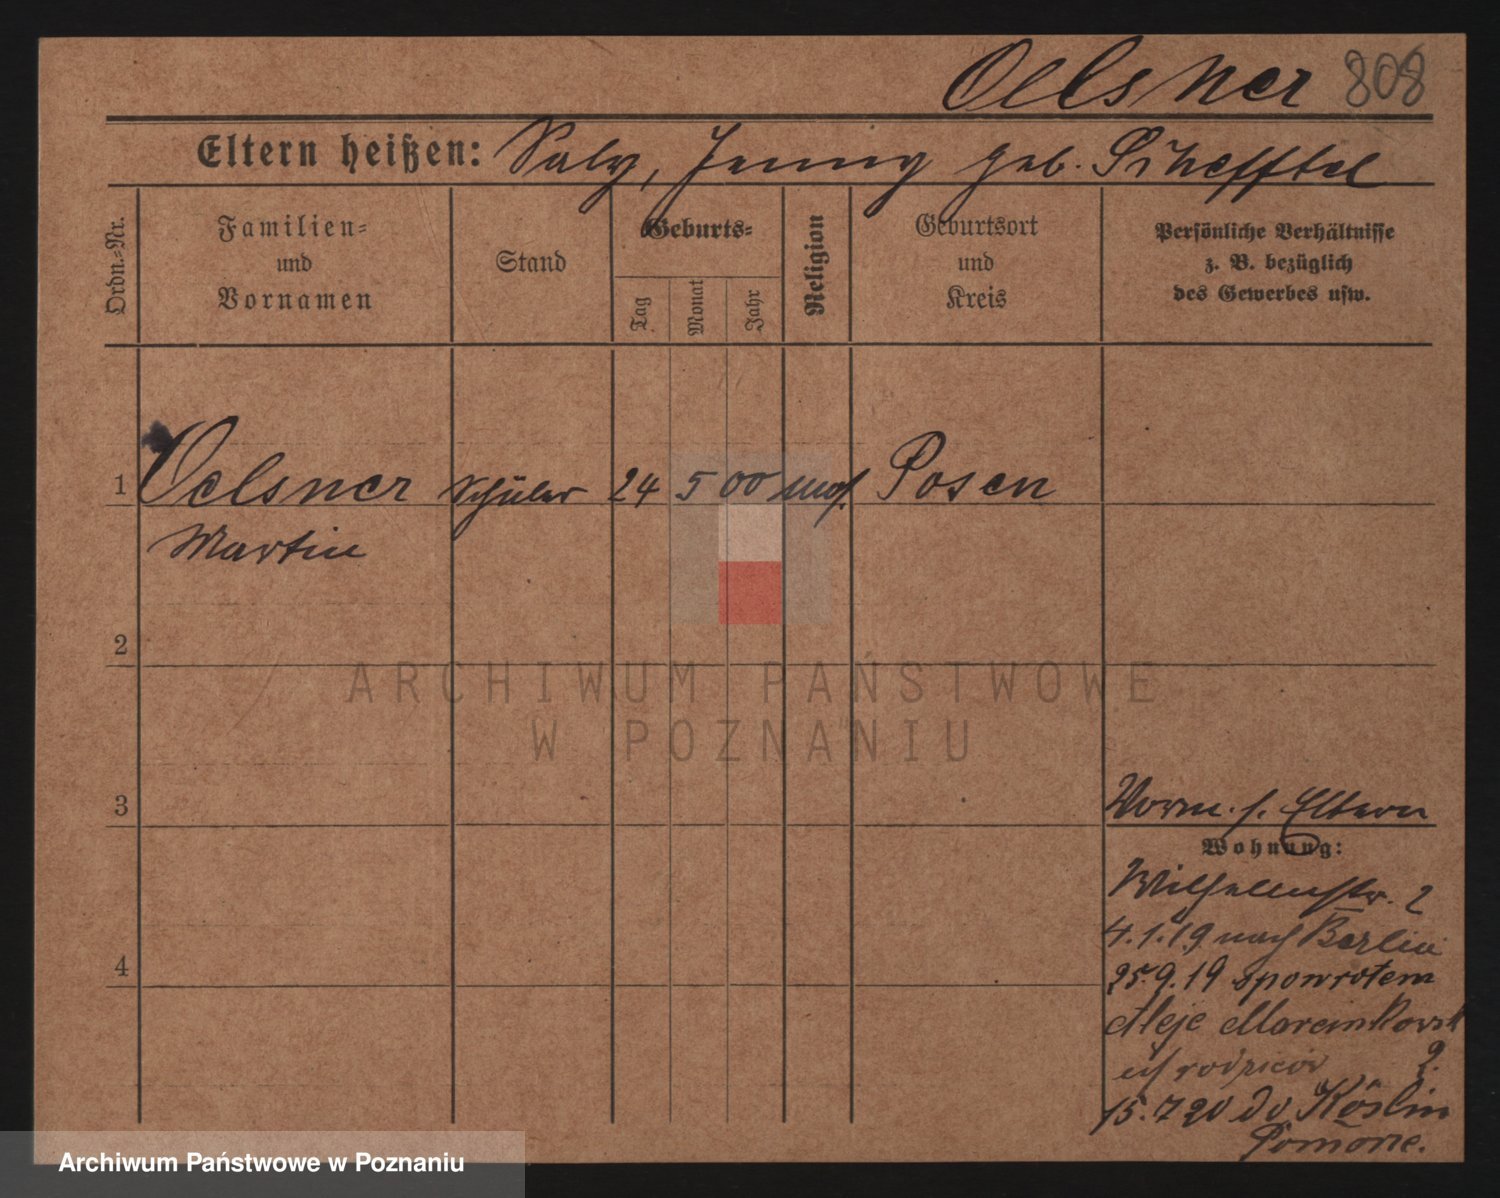 Oelsner 808
Eltern heißen: Saly, Jenny geb. Schefftel
Ordn.-Nr.
Familien-
und
Vornamen
Stand
Geburts-
Tag
Monat
Jahr
Religion
Geburtsort
und
Kreis
Persönliche Verhältnisse
z. B. bezüglich
des Gewerbes usw.
1 Oelsner Schüler 24 5 00 mos. Posen
Martin
2
3
4
ARCHIWUM PAŃSTWOWE
W POZNANIU
Vorm. s. Eltern
Wohnung:
Wilhelmstr. 2
4.1.19 nach Berlin
25.9.19 spowrotem
Aleje Marcinkowsk
2.
u/ rodziców
15.7 20 do Köslin
Pomorze.
Archiwum Państwowe w Poznaniu